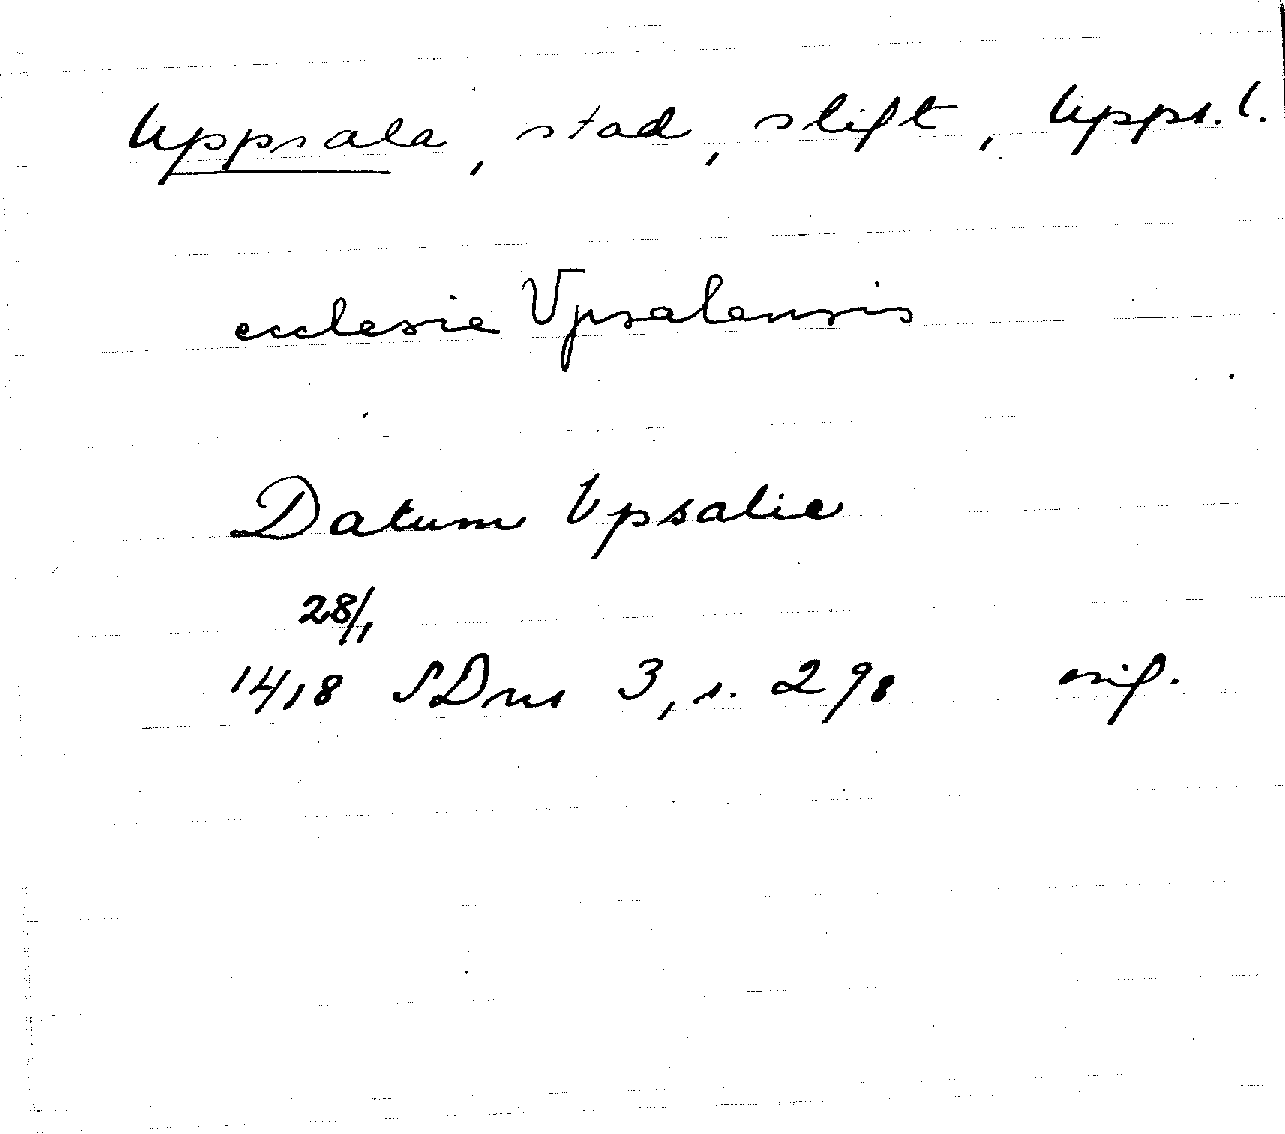 Uppsala, stad, stift, Upps. l.
ecclesie Vpsalensis
Datum Vpsalie
28/1
1418 SDns 3, s. 298 orig.